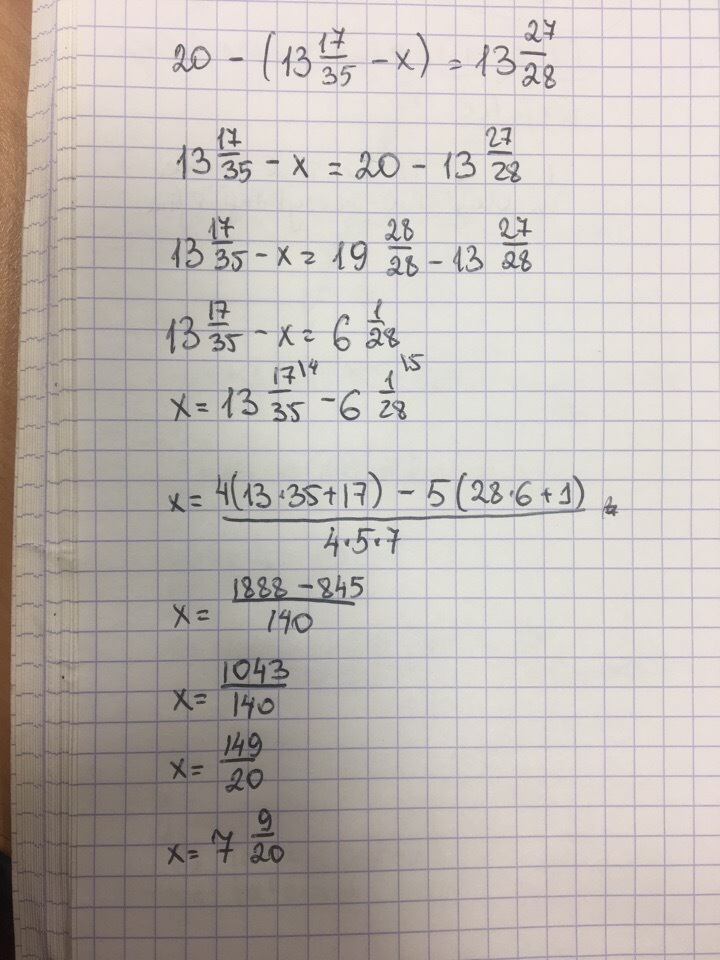 20 - (13 17/35 - x) = 13 27/28
13 17/35 - x = 20 - 13 27/28
13 17/35 - x = 19 28/28 - 13 27/28
13 17/35 - x = 6 1/28
x = 13 17\4/35 - 6 1\5/28
x = 4(13·35+17) - 5(28·6+1)/4·5·7
x = 1888 - 845/140
x = 1043/140
x = 149/20
x = 7 9/20